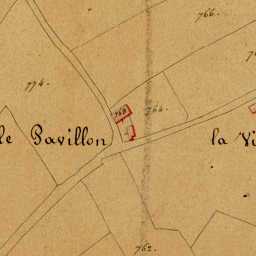 766
774
768
764
le Pavillon
la Vi
762